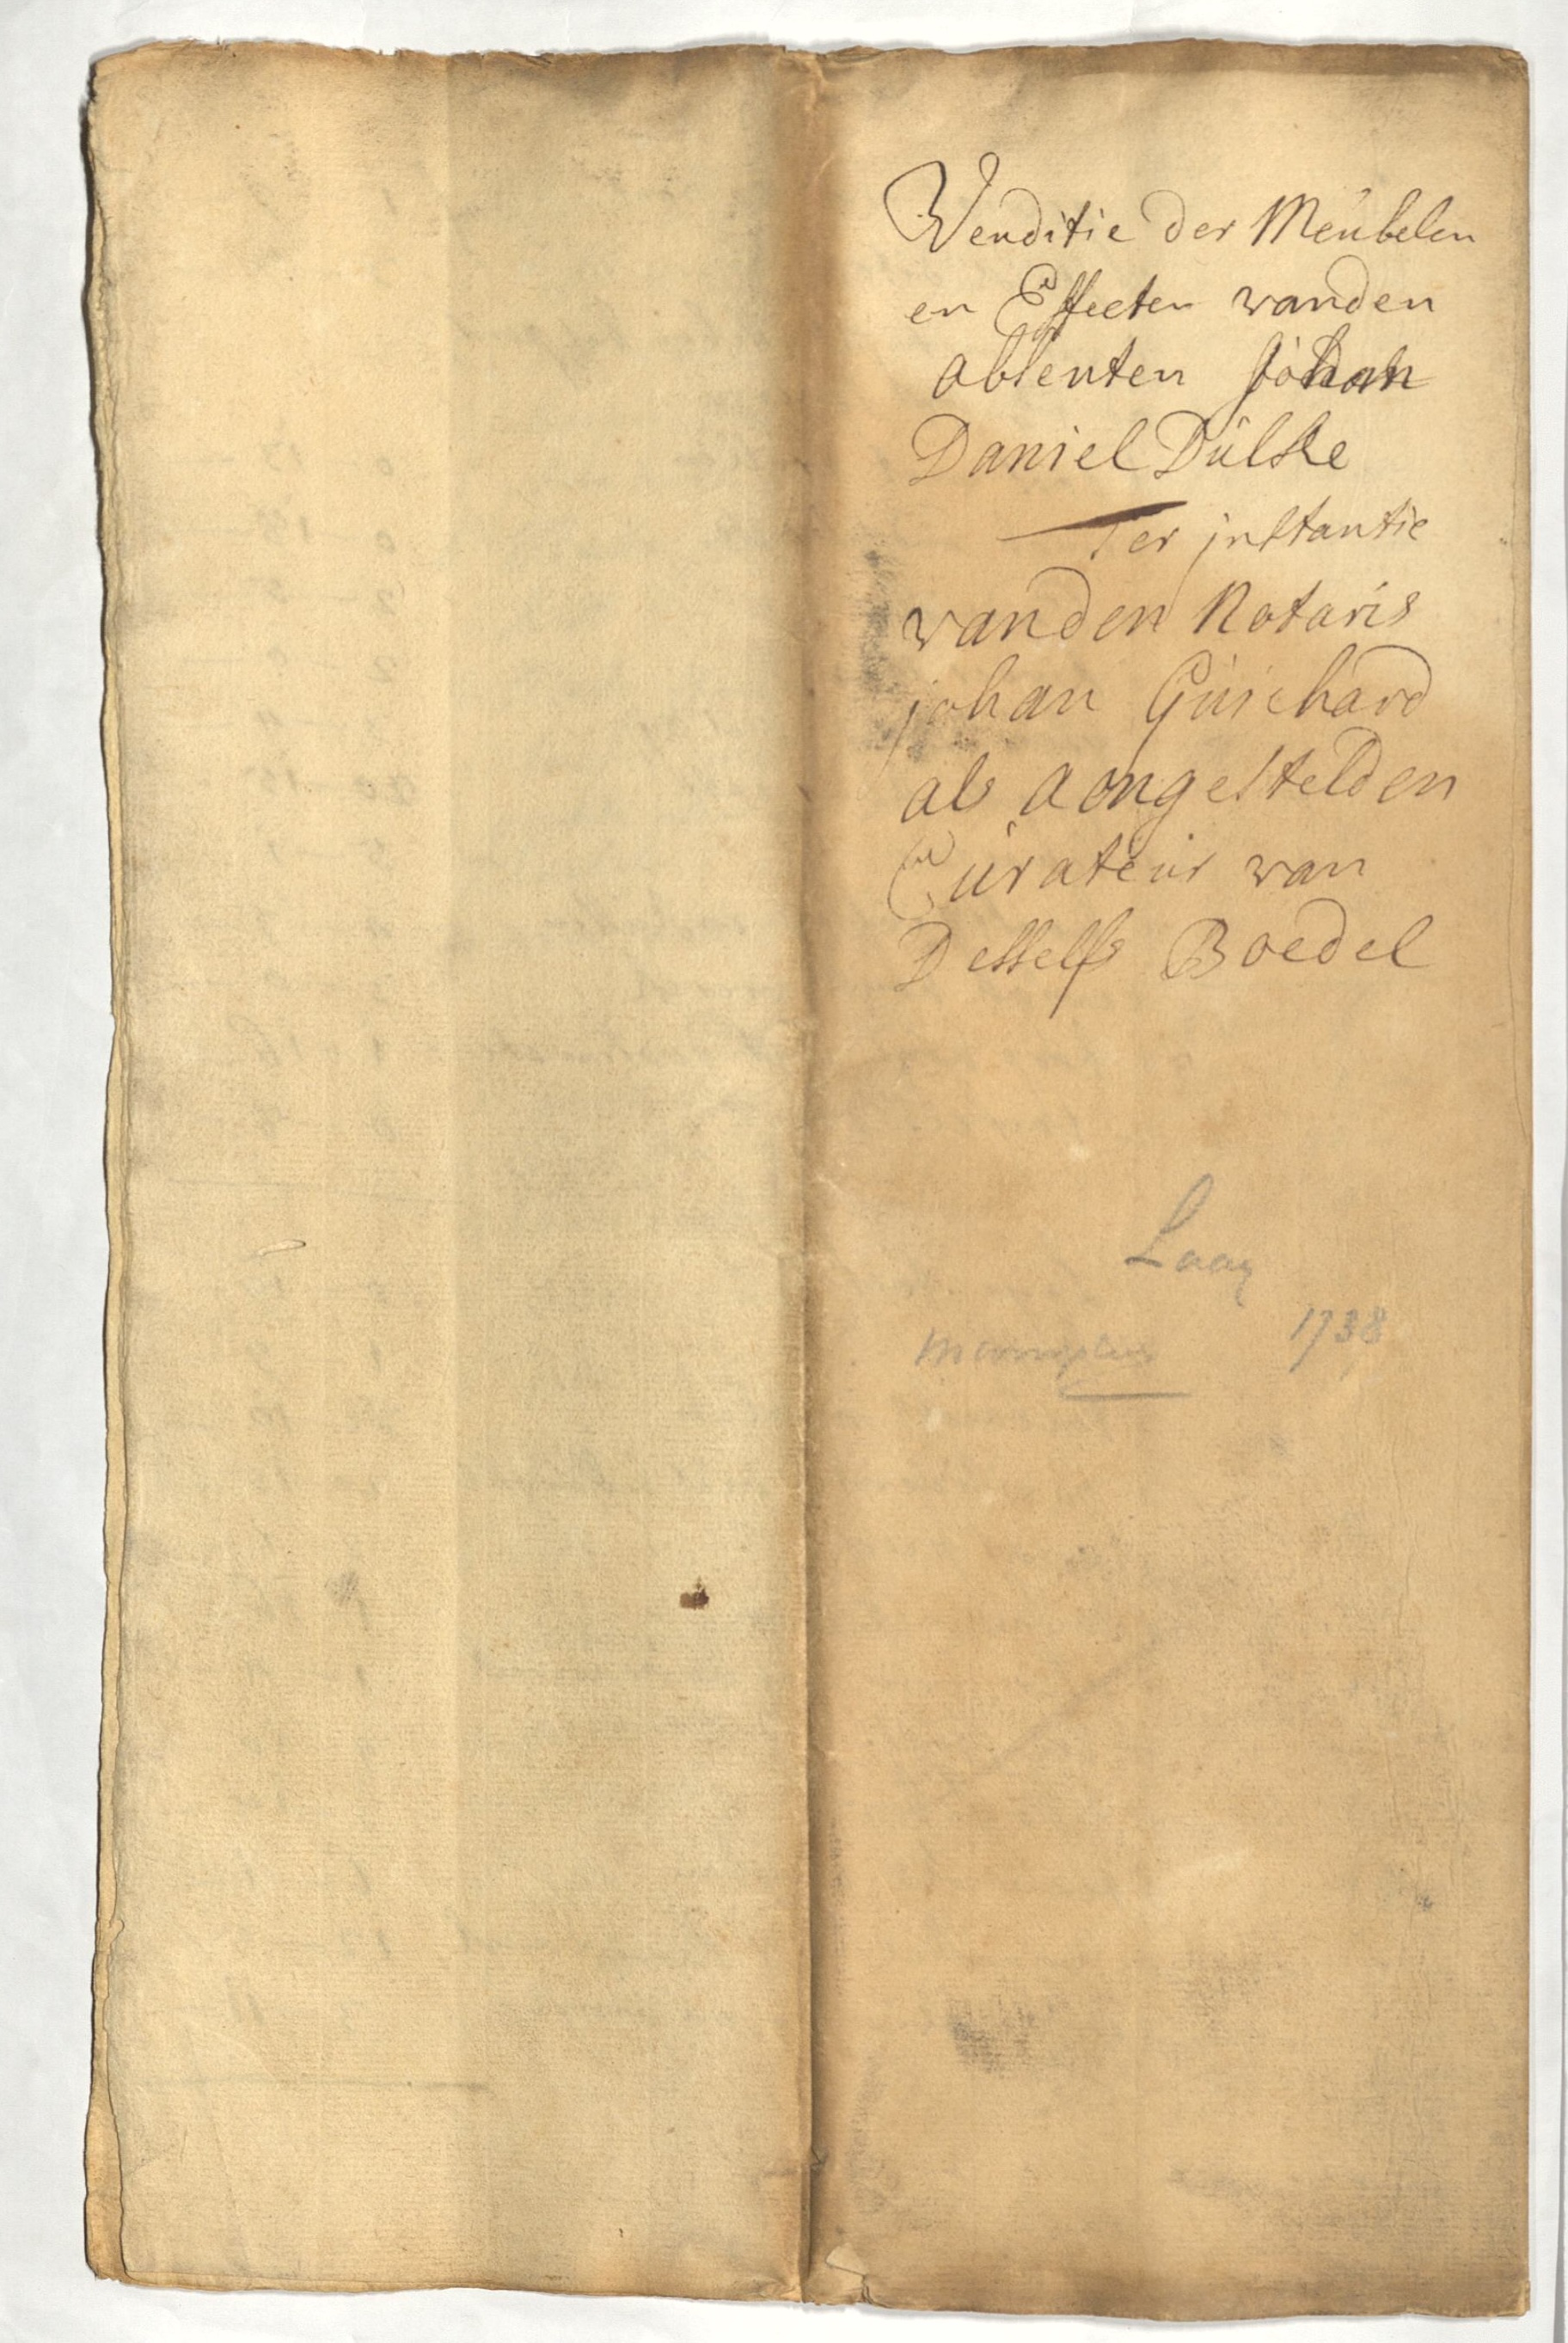 Venditie der Meubelen
en Effecten vanden
absenten Johan
Daniel Dulske
Ter instantie
vanden Notaris
johan Guichard
als aongestelden
Curateur van
Desselfs Boedel
Laag
1738